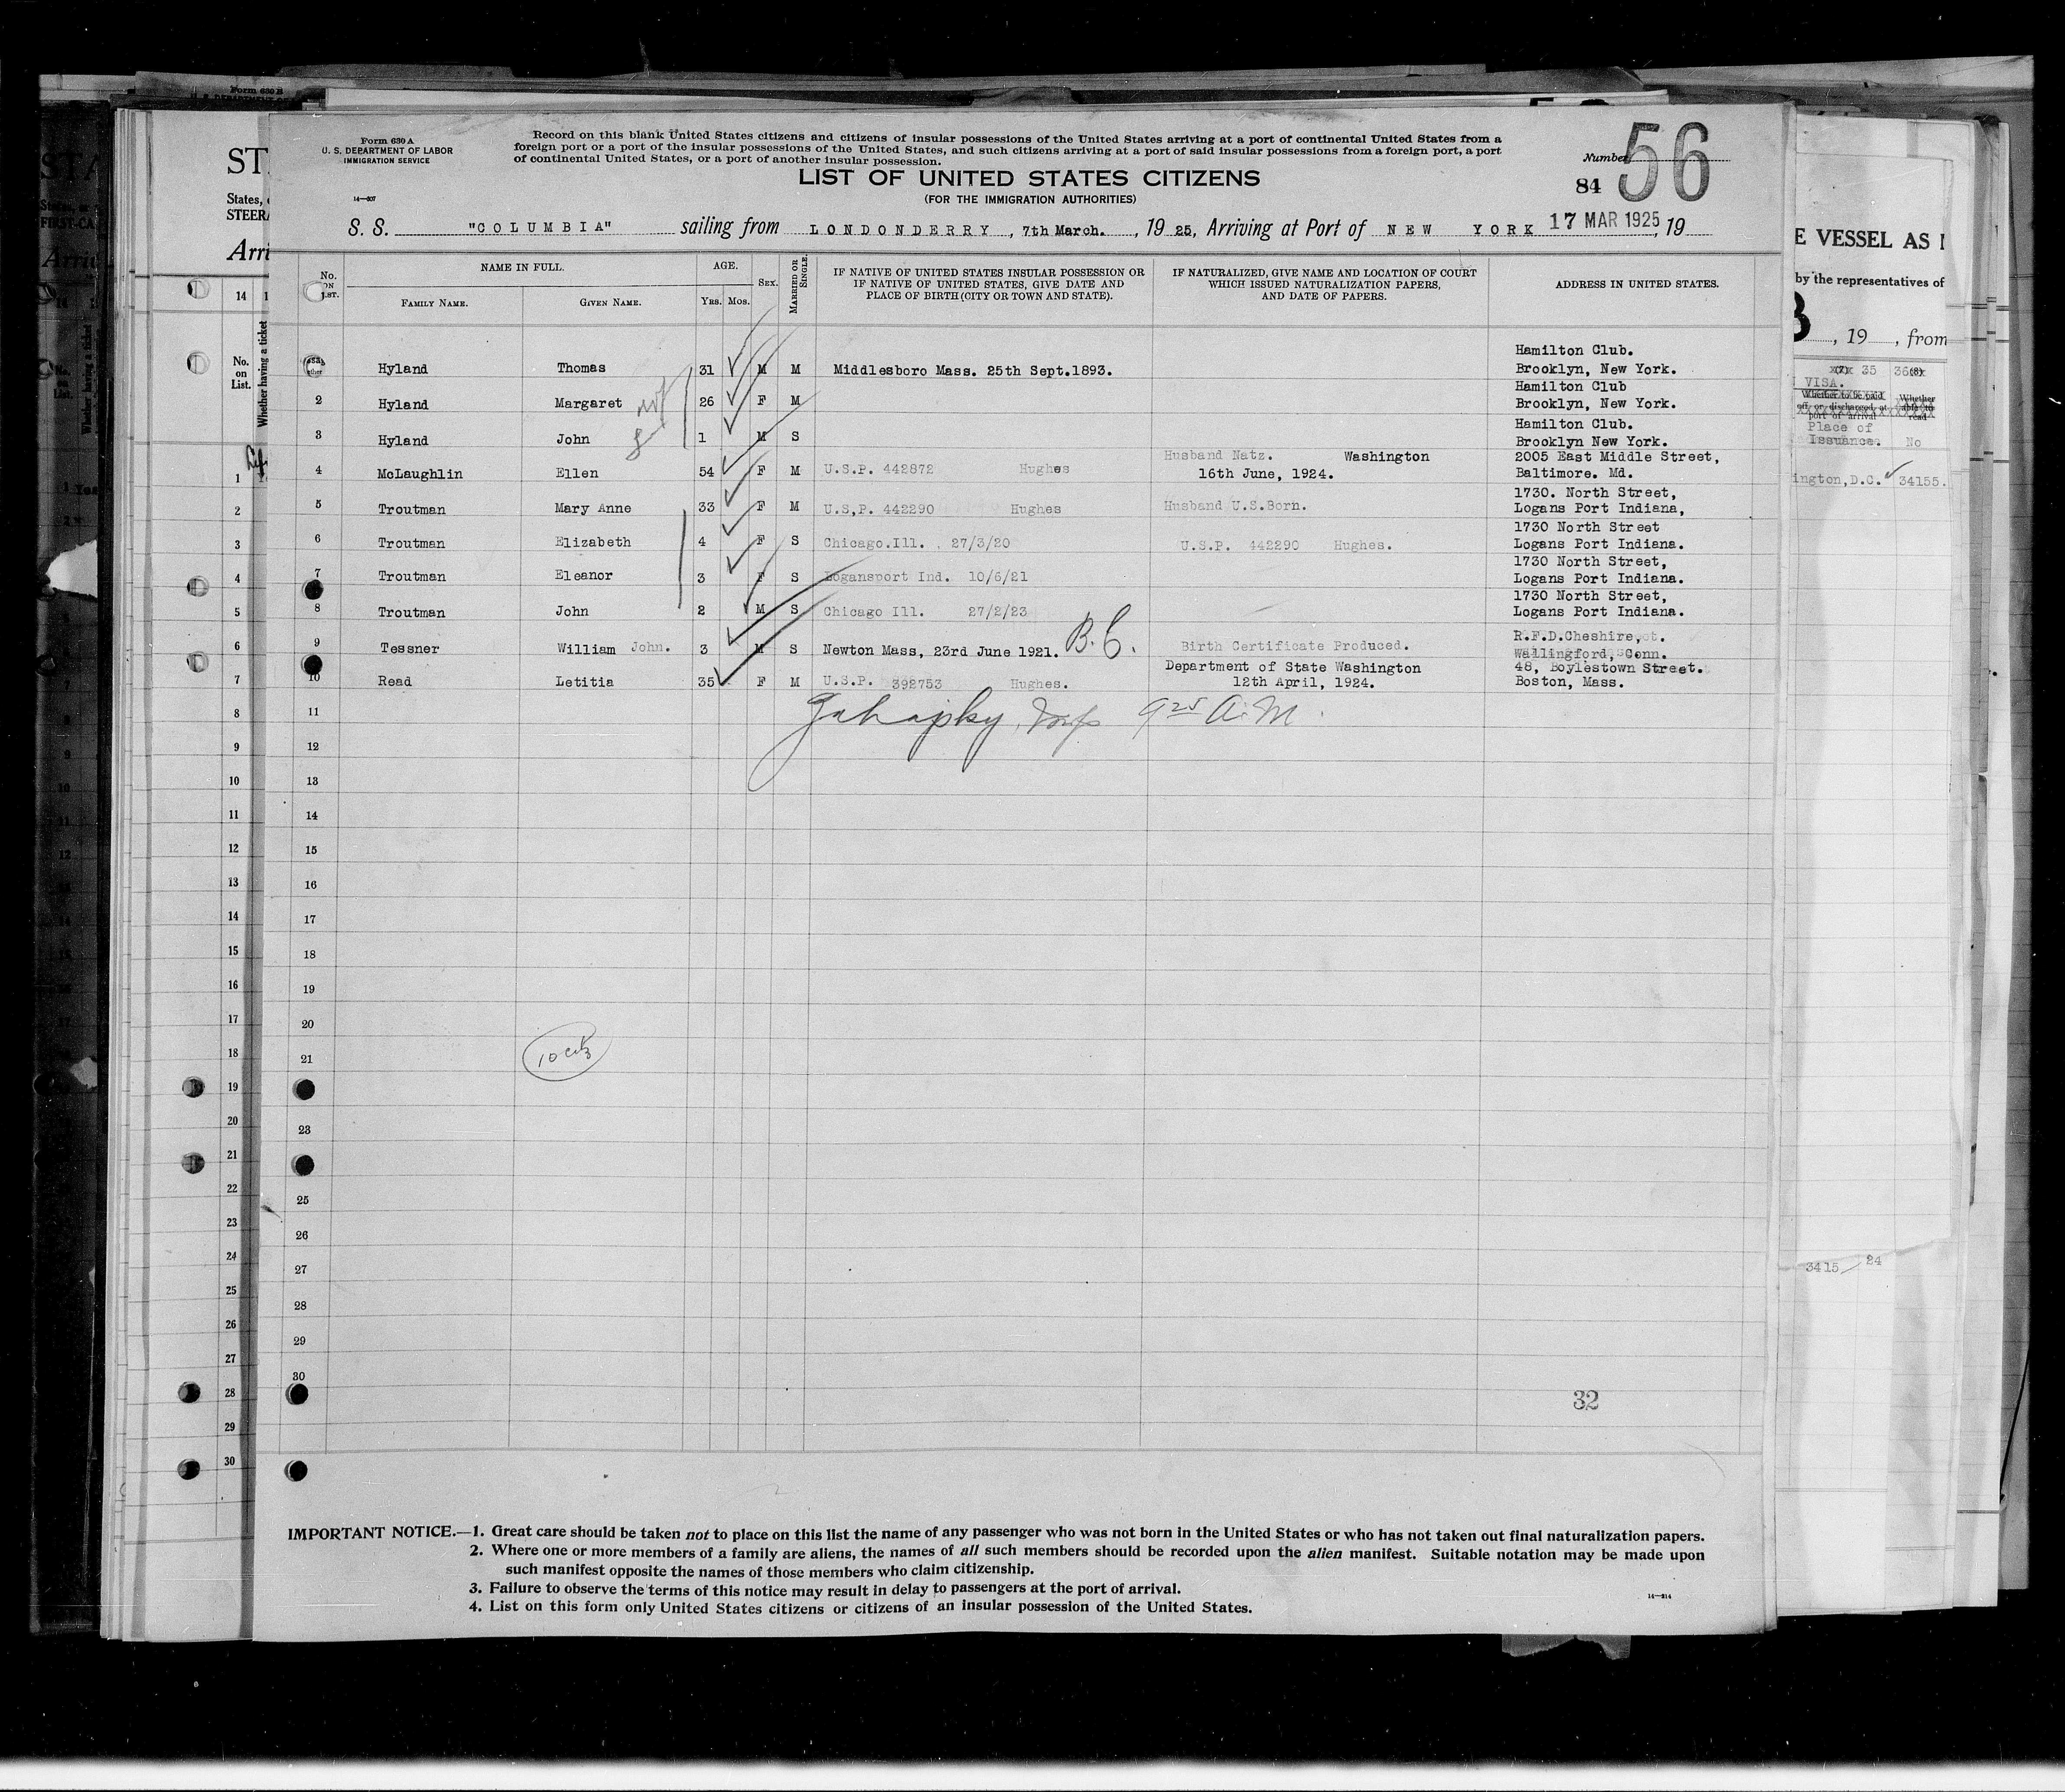 Form 630 B
Form 630 A
U. S. DEPARTMENT OF LABOR
IMMIGRATION SERVICE
14—307
Record on this blank United States citizens and citizens of insular possessions of the United States arriving at a port of continental United States from a
foreign port or a port of the insular possessions of the United States, and such citizens arriving at a port of said insular possessions from a foreign port, a port
of continental United States, or a port of another insular possession.
LIST OF UNITED STATES CITIZENS
(FOR THE IMMIGRATION AUTHORITIES)
Number 56
84
S. S. "COLUMBIA" sailing from LONDONDERRY, 7th March. , 19 25, Arriving at Port of NEW YORK 17 MAR 1925, 19
No. ON LIST.
NAME IN FULL.
FAMILY NAME. GIVEN NAME.
AGE.
Yrs. Mos.
SEX.
MARRIED OR SINGLE.
IF NATIVE OF UNITED STATES INSULAR POSSESSION OR
IF NATIVE OF UNITED STATES, GIVE DATE AND
PLACE OF BIRTH (CITY OR TOWN AND STATE).
IF NATURALIZED, GIVE NAME AND LOCATION OF COURT
WHICH ISSUED NATURALIZATION PAPERS,
AND DATE OF PAPERS.
ADDRESS IN UNITED STATES.
Hamilton Club.
Hyland Thomas 31 M M Middlesboro Mass. 25th Sept.1893. Brooklyn, New York.
Hamilton Club
2 Hyland Margaret 26 F M Brooklyn, New York.
Hamilton Club.
3 Hyland John 1 M S Brooklyn New York.
Husband Natz. Washington 2005 East Middle Street,
4 McLaughlin Ellen 54 F M U.S.P. 442872 Hughes 16th June, 1924. Baltimore. Md.
1730. North Street,
5 Troutman Mary Anne 33 F M U.S,P. 442290 Hughes Husband U.S.Born. Logans Port Indiana,
1730 North Street
6 Troutman Elizabeth 4 F S Chicago.Ill. . 27/3/20 U.S.P. 442290 Hughes. Logans Port Indiana.
1730 North Street,
7 Troutman Eleanor 3 F S Logansport Ind. 10/6/21 Logans Port Indiana.
1730 North Street,
8 Troutman John 2 M S Chicago Ill. 27/2/23 Logans Port Indiana.
R.F.D.Cheshire,
9 Tessner William John. 3 M S Newton Mass, 23rd June 1921. B.C. Birth Certificate Produced. Wallingford, Conn.
Department of State Washington 48, Boylestown Street.
10 Read Letitia 35 F M U.S.P. 392753 Hughes. 12th April, 1924. Boston, Mass.
11 9 25 A.M.
12
13
14
15
16
17
18
19
20
21
10 citz
23
25
26
27
28
29
30
32
IMPORTANT NOTICE.—1. Great care should be taken not to place on this list the name of any passenger who was not born in the United States or who has not taken out final naturalization papers.
2. Where one or more members of a family are aliens, the names of all such members should be recorded upon the alien manifest. Suitable notation may be made upon
such manifest opposite the names of those members who claim citizenship.
3. Failure to observe the terms of this notice may result in delay to passengers at the port of arrival.
4. List on this form only United States citizens or citizens of an insular possession of the United States.
14—214
ST
States,
STEERA
Arri
14
No.
on
List.
Whether having a ticket
1
2
3
4
5
6
7
8
9
10
11
12
13
14
15
16
17
18
19
20
21
22
23
24
25
26
27
28
29
30
E VESSEL AS
by the representatives of
, 19 , from
35 36
VISA.
Whether to be paid
off or discharged at
port of arrival
Whether
able to
read
Place of
Issuance. No
ington,D.C. 34155.
3415 24